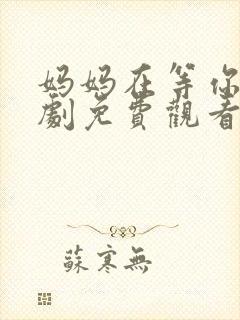 妈妈在等你
劇免費觀看
蘇寒無